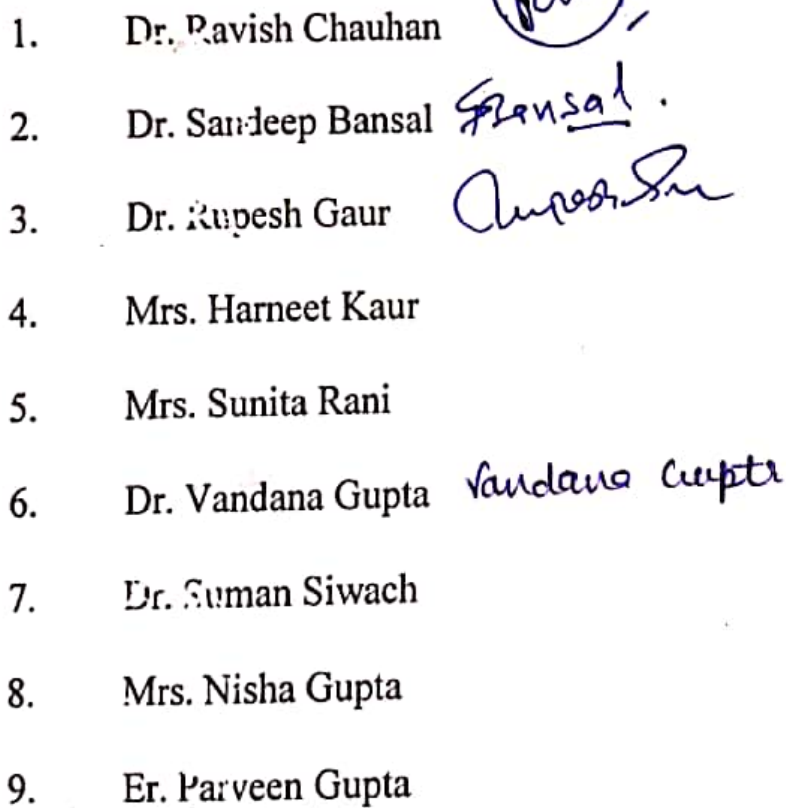 1. Dr. Ravish Chauhan
2. Dr. Sandeep Bansal Bansal.
3. Dr. Rupesh Gaur
4. Mrs. Harneet Kaur
5. Mrs. Sunita Rani
6. Dr. Vandana Gupta Vandana Gupta
7. Dr. Suman Siwach
8. Mrs. Nisha Gupta
9. Er. Parveen Gupta